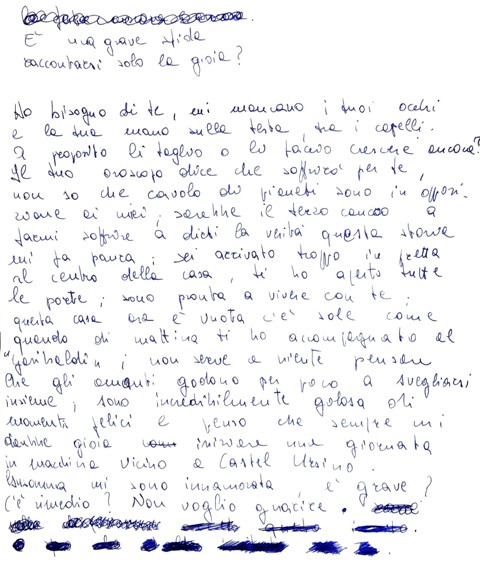 E' una grave sfida
raccontarsi solo la gioia?
Ho bisogno di te, mi mancano i tuoi occhi
e la tua mano sulla testa, tra i capelli.
A proposito li taglio o li faccio crescere ancora?
Il tuo oroscopo dice che soffrirò per te,
non so che cavolo di pianeti sono in opposi-
zione ai miei, sarebbe il terzo a
farmi soffrire a dirti la verità questa storia
mi fa paura, sei arrivato troppo in fretta
al centro della casa, ti ho aperto tutte
le porte, sono pronta a vivere con te,
questa casa ora è vuota c'è sole come
quando di mattina ti ho accompagnato al
"garibaldi", non serve a niente pensare
che gli amanti godono per poco a svegliarsi
insieme, sono incredibilmente golosa di
momenti felici e penso che sempre mi
darebbe gioia iniziare una giornata
in macchina vicino a Castel Ursino.
Insomma mi sono innamorata, è grave?
C'è rimedio? Non voglio guarire.